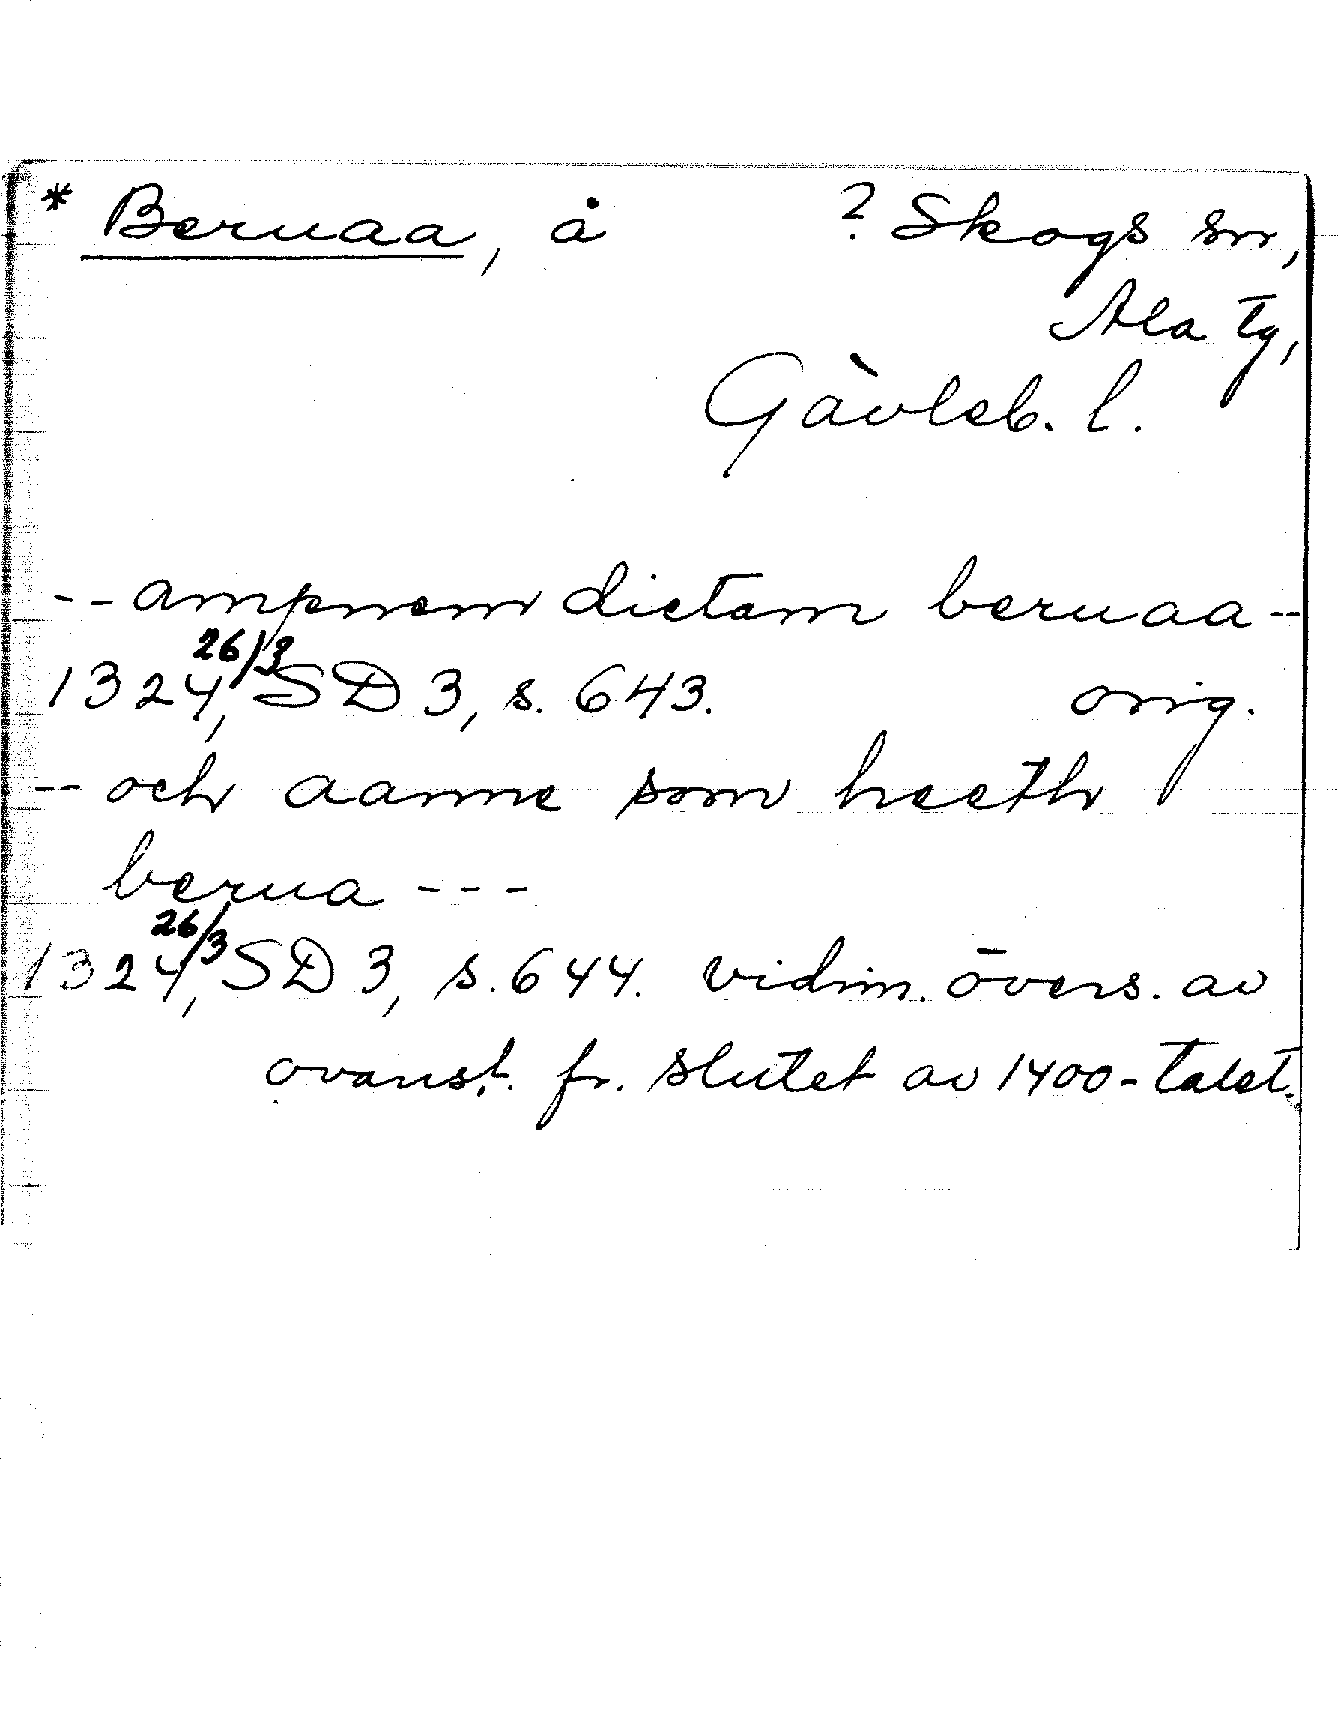 * Beruaa, å ? Skogs sn,
Ala tg,
Gävleb. l.
-- ampnem dictam beruaa --
1324 26/3, SD 3, s. 643. orig.
-- och aanne som heeth
berua ---
1324 26/3, SD 3, s. 644. vidim. övers. av
ovanst. fr. slutet av 1400-talet.